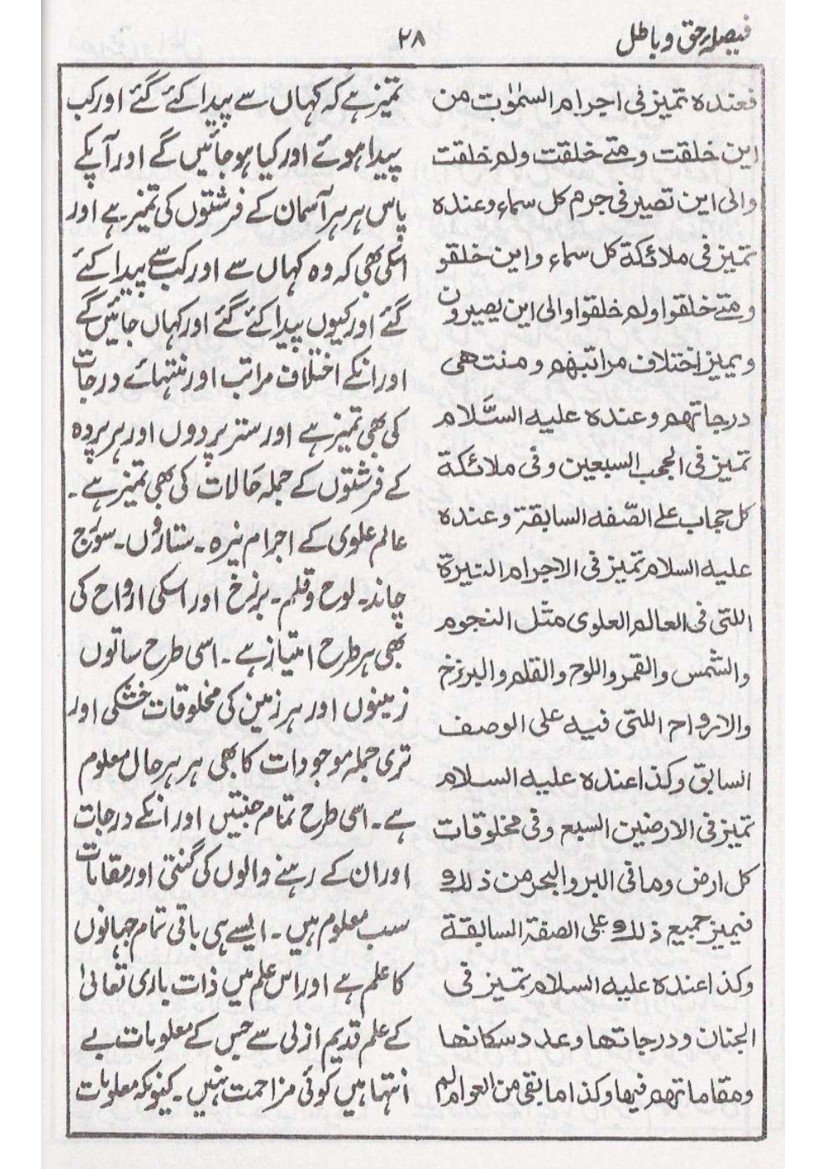 فیصلۂ حق و باطل
۲۸
فعنده تمیز فی اجرام السمٰوٰت من
این خلقت و متے خلقت ولم خلقت
والی این تصیر فی جرم کل سماء وعنده
تمیز فی ملائکة کل سماء واین خلقو
و متے خلقوا ولم خلقوا والی این یصیرون
ویمیز اختلاف مراتبهم ومنتهی
درجاتهم وعنده علیه السَّلام
تمیز فی الحجب السبعین وفی ملائکة
کل حجاب علے الصّفه السابقة وعنده
علیه السلام تمیز فی الاجرام النیرة
اللتی فی العالم العلوی مثل النجوم
والشمس والقمر واللوح والقلم والبرزخ
والارواح اللتی فیه علی الوصف
السابق وکذا عنده علیه السلام
تمیز فی الارضین السبع وفی مخلوقات
کل ارض وما فی البر والبحر من ذلك
فیمیز جمیع ذلك علی الصفة السابقة
وکذا عنده علیه السلام تمیز فی
الجنان ودرجاتها وعدد سکانها
ومقاماتهم فیها وکذا ما بقی من العوالم
تمیز ہے کہ کہاں سے پیدا کئے گئے اور کب
پیدا ہوئے اور کیا ہو جائیں گے اور آپکے
پاس ہر ہر آسمان کے فرشتوں کی تمیز ہے اور
اسکی بھی کہ وہ کہاں سے اور کب سے پیدا کئے
گئے اور کیوں پیدا کئے گئے اور کہاں جائیں گے
اور انکے اختلاف مراتب اور منتہائے درجات
کی بھی تمیز ہے اور ستر پردوں اور ہر پردہ
کے فرشتوں کے جملہ حالات کی بھی تمیز ہے۔
عالم علوی کے اجرام نیرہ۔ ستاروں۔ سورج
چاند۔ لوح و قلم۔ برزخ اور اسکی ارواح کی
بھی ہر طرح امتیاز ہے۔ اسی طرح ساتوں
زمینوں اور ہر زمین کی مخلوقات خشکی اور
تری جملہ موجودات کا بھی ہر ہر حال معلوم
ہے۔ اسی طرح تمام جنتیں اور انکے درجات
اور ان کے رہنے والوں کی گنتی اور مقامات
سب معلوم ہیں۔ ایسے ہی باقی تمام جہانوں
کا علم ہے اور اس علم میں ذات باری تعالیٰ
کے علم قدیم ازلی سے جس کے معلومات بے
انتہا ہیں کوئی مزاحمت نہیں۔ کیونکہ معلومات